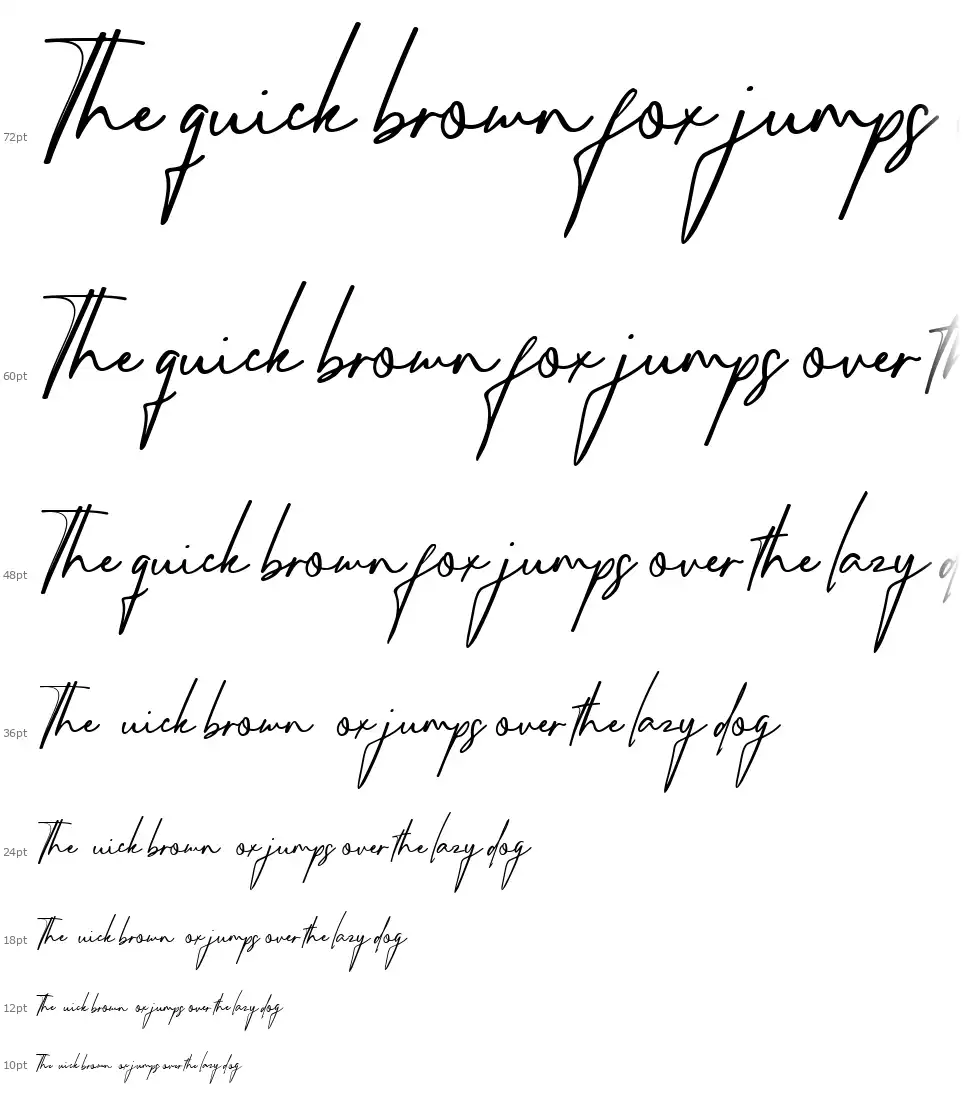 72pt The quick brown fox jumps
60pt The quick brown fox jumps over th
48pt The quick brown fox jumps over the lazy d
36pt The uick brown ox jumps over the lazy dog
24pt The uick brown ox jumps over the lazy dog
18pt The uick brown ox jumps over the lazy dog
12pt The uick brown ox jumps over the lazy dog
10pt The uick brown ox jumps over the lazy dog